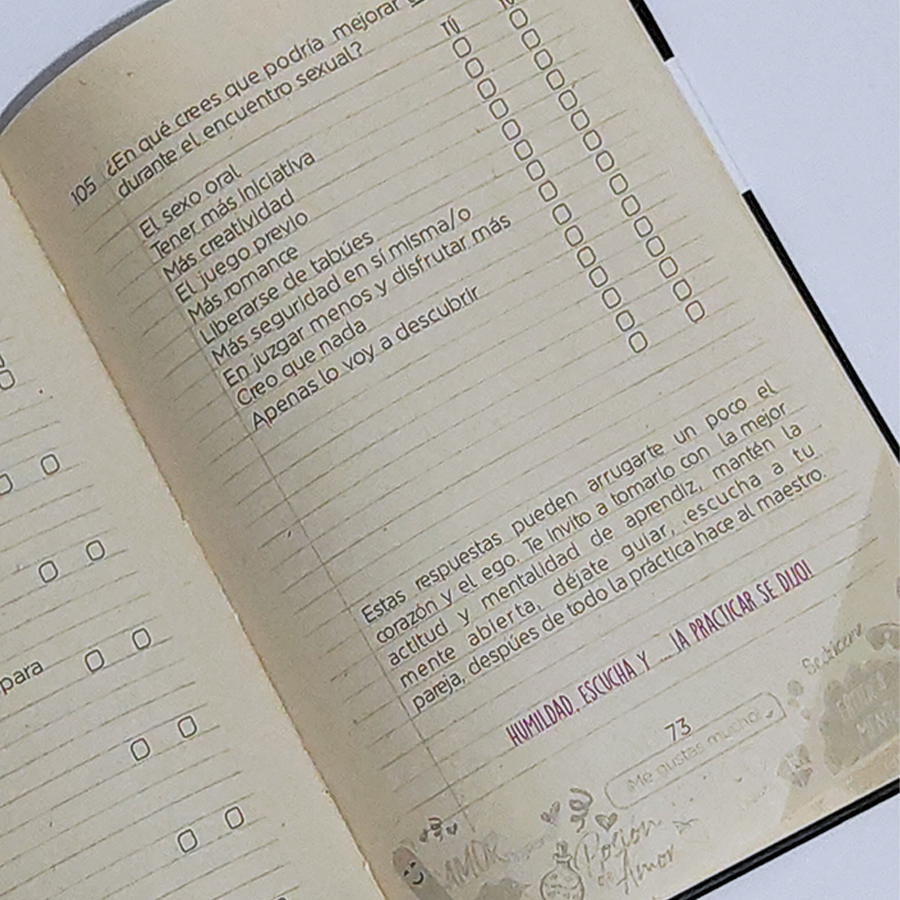 105 ¿En qué crees que podría mejorar
durante el encuentro sexual?
TÚ
El sexo oral
Tener más iniciativa
Más creatividad
El juego previo
Más romance
Liberarse de tabúes
Más seguridad en sí misma/o
En juzgar menos y disfrutar más
Creo que nada
Apenas lo voy a descubrir
para
Estas respuestas pueden arrugarte un poco el
corazón y el ego. Te invito a tomarlo con la mejor
actitud y mentalidad de aprendiz, mantén la
mente abierta, déjate guiar, escucha a tu
pareja, despúes de todo la práctica hace al maestro.
HUMILDAD, ESCUCHA Y ...¡A PRACTICAR SE DIJO!
73
¡Me gustas mucho!
Seducere
AMOR
Poción
de Amor